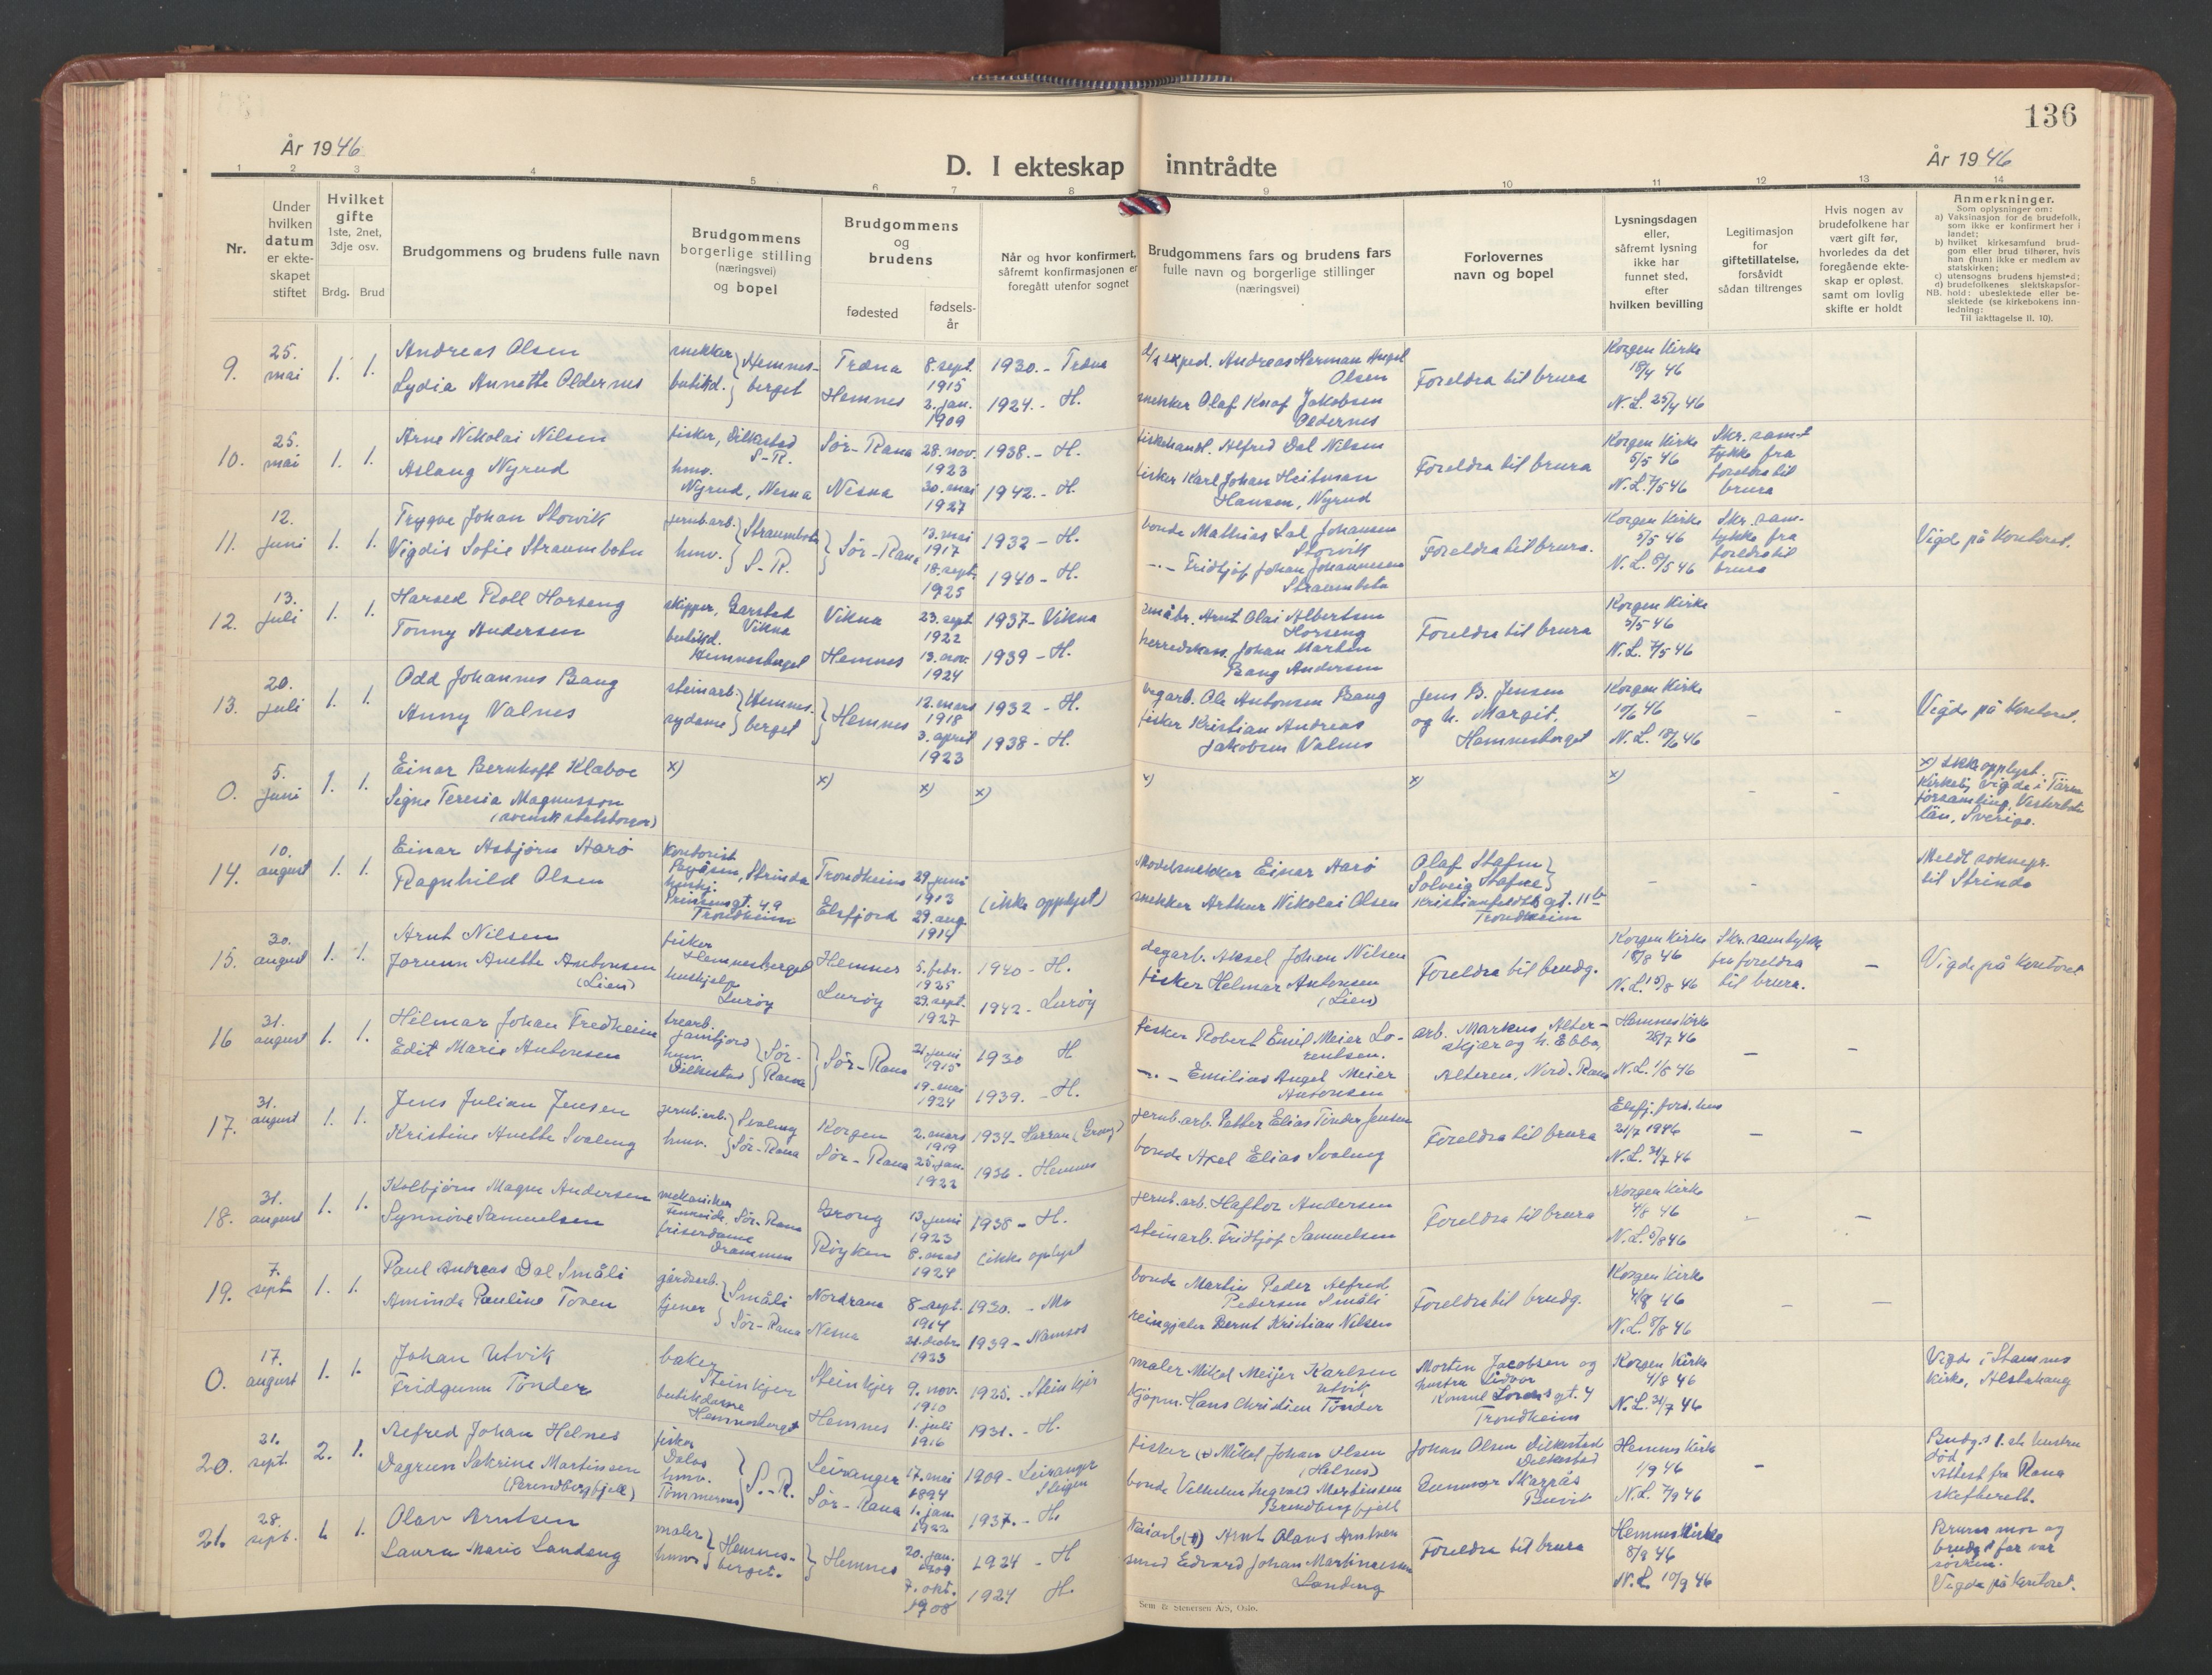 136
År 1946
År 1946
D. I ekteskap inntrådte
1 2 3 4 5 6 7 8 9 10 11 12 13 14
Nr.
Under
hvilken
datum
er ekte-
skapet
stiftet
Hvilket
gifte
1ste, 2net,
3dje osv.
Brdg. Brud
Brudgommens og brudens fulle navn
Brudgommens
borgerlige stilling
(næringsvei)
og bopel
Brudgommens
og
brudens
fødested
fødsels-
år
Når og hvor konfirmert,
såfremt konfirmasjonen er
foregått utenfor sognet
Brudgommens fars og brudens fars
fulle navn og borgerlige stillinger
(næringsvei)
Forlovernes
navn og bopel
Lysningsdagen
eller,
såfremt lysning
ikke har
funnet sted,
efter
hvilken bevilling
Legitimasjon
for
giftetillatelse,
forsåvidt
sådan tiltrenges
Hvis nogen av
brudefolkene har
vært gift før,
hvorledes da det
foregående ekte-
skap er opløst,
samt om lovlig
skifte er holdt
Anmerkninger.
Som oplysninger om:
a) Vaksinasjon for de brudefolk,
som ikke er konfirmert her i
landet;
b) hvilket kirkesamfund brud-
gom eller brud tilhører, hvis
han (hun) ikke er medlem av
statskirken;
c) utensogns brudens hjemsted;
d) brudefolkenes slektskapsfor-
NB. hold: ubeslektede eller be-
slektede (se kirkebokens inn-
ledning:
Til iakttagelse II. 10).
9. 25. mai 1. 1.
Andreas Olsen
Lydia Annette Oldernes
snekker
butikkd.
Hemnes-
berget
Træna
Hemnes
8. sept.
1915
2. jan.
1909
1930. - Træna
1924. - H.
d/s exped. Andreas Herman Angel
Olsen
snekker Olaf Knof Jakobsen
Oldernes
Foreldra til brura
Korgen Kirke
18/4 46
N.L. 25/4 46
10. 25. mai 1. 1.
Arne Nikolai Nilsen
Aslaug Nyrud
fisker, Dilkestad
S-R.
hmv.
Nyrud, Nesna
Sør-Rana
Nesna
28. nov.
1923
30. mai
1927
1938. - H.
1942. - H.
fiskehandl. Alfred Dal Nilsen
fisker Karl Johan Heitman
Hansen, Nyrud
Foreldra til brura
Korgen Kirke
5/5 46
N.L. 7/5 46
Skr. sam-
tykke fra
foreldra til
brura
11. 12. juni 1. 1.
Trygve Johan Storvik
Vigdis Sofie Straumbotn
jernb.arb.
hmv.
Straumbotn
S-R.
Sør-Rana
13. mai
1917
18. sept.
1925
1932 - H.
1940 - H.
bonde Mathias Dal Johansen
Storvik
-.- Fridtjof Johan Johannesen
Straumbotn
Foreldra til brura.
Korgen Kirke
5/5 46
N.L. 8/5 46
Skr. sam-
tykke fra
foreldra til
brura
Vigde på kontoret.
12. 13. juli 1. 1.
Harsed Roll Horseng
Tonny Andersen
skipper, Garstad
Vikna
butikkd.
Hemnesberget
Vikna
Hemnes
23. sept
1922
13. nov.
1924
1937 - Vikna
1939 - H.
småbr. Arnt Olai Albertsen
Horseng
herredskass. Johan Martin
Bang Andersen
Foreldra til brura
Korgen Kirke
5/5 46
N.L. 7/5 46
13. 20. juli 1. 1.
Odd Johannes Bang
Anny Valnes
steinarb.
sydame
Hemnes-
berget
Hemnes
12. mars
1918
3. april
1923
1932 - H.
1938 - H.
vegarb. Ole Antonsen Bang
fisker Kristian Andreas
Jakobsen Valnes
Jens B. Jensen
og h. Margit.
Hemnesberget
Korgen Kirke
10/6 46
N.L. 18/6 46
Vigde på kontoret.
0. 5. juni 1. 1.
Einar Bernhoft Klæboe
Signe Teresia Magnusson
(svensk statsborger)
x) x) x) x) x) x) x)
x) Ikke opplyst.
Kirkelig vigde i Tärna
församling, Vesterbotn
län, Sverige.
14. 10. august 1. 1.
Einar Asbjørn Aarø
Ragnhild Olsen
kontorist
Strinda
hushj.
Prinsensgt. 49
Trondheim
Trondheim
Elsfjord
29. juni
1913
29. aug.
1914
(ikke opplyst)
modellsnekker Einar Aarø
snekker Arthur Nikolai Olsen
Olaf Stafne
Solveig Stafne
Kristianfeldts gt. 11b
Trondheim
Meldt soknepr.
til Strinda
15. 30. august 1. 1.
Arnt Nilsen
Jorunn Anette Antonsen
(Lien)
fisker
Hemnesberget
hushjelp
Lurøy
Hemnes
Lurøy
5. febr.
1925
29. sept.
1927
1940 - H.
1942 - Lurøy
dagarb. Aksel Johan Nilsen
fisker Helmar Antonsen
(Lien)
Foreldra til brudg.
Korgen Kirke
18/8 46
N.L. 19/8 46
Skr. samtykke
fra foreldra
til brura.
Vigde på kontoret
16 31. august 1. 1.
Hilmar Johan Fredheim
Edit Marie Antonsen
trearb.
hmv.
Dilkestad
Sør-
Rana
Sør-Rana
21. juni
1915
19. mai
1924
1930 H
1939. - H.
fisker Robert Emil Meier Lo-
rentsen.
-.- Emilius Angel Meier
Antonsen
arb. Markus Alter-
skjær og h. Ebba,
Alteren, Nord-Rana
Hemnes Kirke
28/7 46
N.L. 1/8 46
17. 31. august 1. 1.
Jens Julian Jensen
Kristine Anette Svaleng
jernb.arb.
hmv.
Svaleng
Sør-Rana
Korgen
Sør-Rana
2. mars
1919
25. jan.
1922
1934 - Harran (Grong)
1936 - Hemnes
jernb.arb. Petter Elias Tinder Jensen
bonde Axel Elias Svaleng
Foreldra til brura
Elsfj. fors.hus
21/7 1946
N.L. 31/7 46
18. 31. august 1. 1.
Kolbjørn Magne Andersen
Synnøve Samuelsen
mekaniker
Finneidf., Sør-Rana
friserdame
Drammen
Grong
Røyken
13. juni
1923
8. mai
1924
1938 - H.
(ikke oplyst
jernb.arb. Haftor Andersen
steinarb. Fridtjof Samuelsen
Foreldra til brura
Korgen Kirke
4/8 46
N.L. 5/8 46
19. 7. sept 1. 1.
Paul Andreas Dal Småli
Aminda Pauline Toven
gårdsarb.
tjener
Småli
Sør-Rana
Nordrana
Nesna
8. sept.
1914
21. decbr
1923
1930. - Mo
1939 - Namsos
bonde Martin Peder Alfred
Pedersen Småli
reingjeter Bernt Kristian Nilsen
Foreldra til brudg.
Korgen Kirke
4/8 46
N.L. 8/8 46
0. 17. august 1. 1.
Johan Utvik
Fridgunn Tönder
baker
Steinkjer
butikkdame
Hemnesberget
Steinkjer
Hemnes
9. nov.
1910
1. juli
1916
1925. - Steinkjer
1931. - H.
maler Mikal Meijer Karlsen
Utvik
kjøpm. Hans Christien Tønder
Morten Jacobsen og
hustru Lidvor
Konsul Lorcks gt. 4
Trondheim
Korgen Kirke
4/8 46
N.L. 31/7 46
Vigde i Stamnes
Kirke, Alstahaug
20. 21. sept. 2. 1.
Alfred Johan Helnes
Dagrun Sakrine Martinsen
(Brendbergfjell)
fisker
Dalos
hmv.
Tømmernes
S.-R.
Leiranger
Sør-Rana
17. mai
1894
1. jan.
1922
1909 - Leiranger
Steigen
1937. - H.
fisker (+) Mikal Johan Olsen
(Helnes)
bonde Vilhelm Ingvald Martinsen
Brendbergfjell
Johan Olsen Dilkestad
Dilkestad
Gunnar Skarrås
Buvik
Hemnes Kirke
1/9 46
N.L. 7/9 46
Brudg.s 1. st. hustru
død,
Attest fra Rana
skifterett.
21. 28. sept. 1. 1.
Olav Arntsen
Laura Marie Landeng
maler
hmv.
Hemnes-
berget.
Hemnes
20. jan.
1909
7. okt.
1908
1924 - H
1924 H.
kaiarb (+) Arnt Olaus Arntsen
smed Edvard Johan Martinussen
Landeng
Foreldra til brura
Hemnes Kirke
8/9 46
N.L. 10/9 46
Bruras mor og
brudg.s far var
søsken.
Vigde på kontoret.
Sem & Stenersen A/S, Oslo.